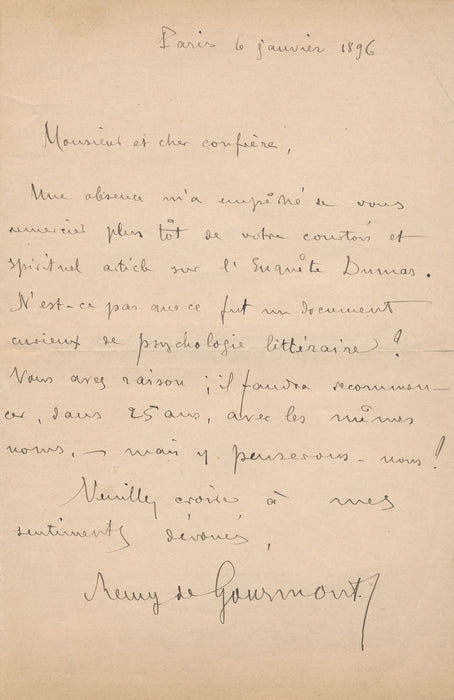 Paris 6 janvier 1896
Monsieur et cher confrère,
Une absence m'a empêché de vous
remercier plus tôt de votre courtois et
spirituel article sur l'Enquête Dumas.
N'est-ce pas que ce fut un document
curieux de psychologie littéraire ?
Vous avez raison ; il faudra recommen-
cer, dans 25 ans, avec les mêmes
noms, — mais y penserons-nous !
Veuillez croire à mes
sentiments dévoués,
Remy de Gourmont